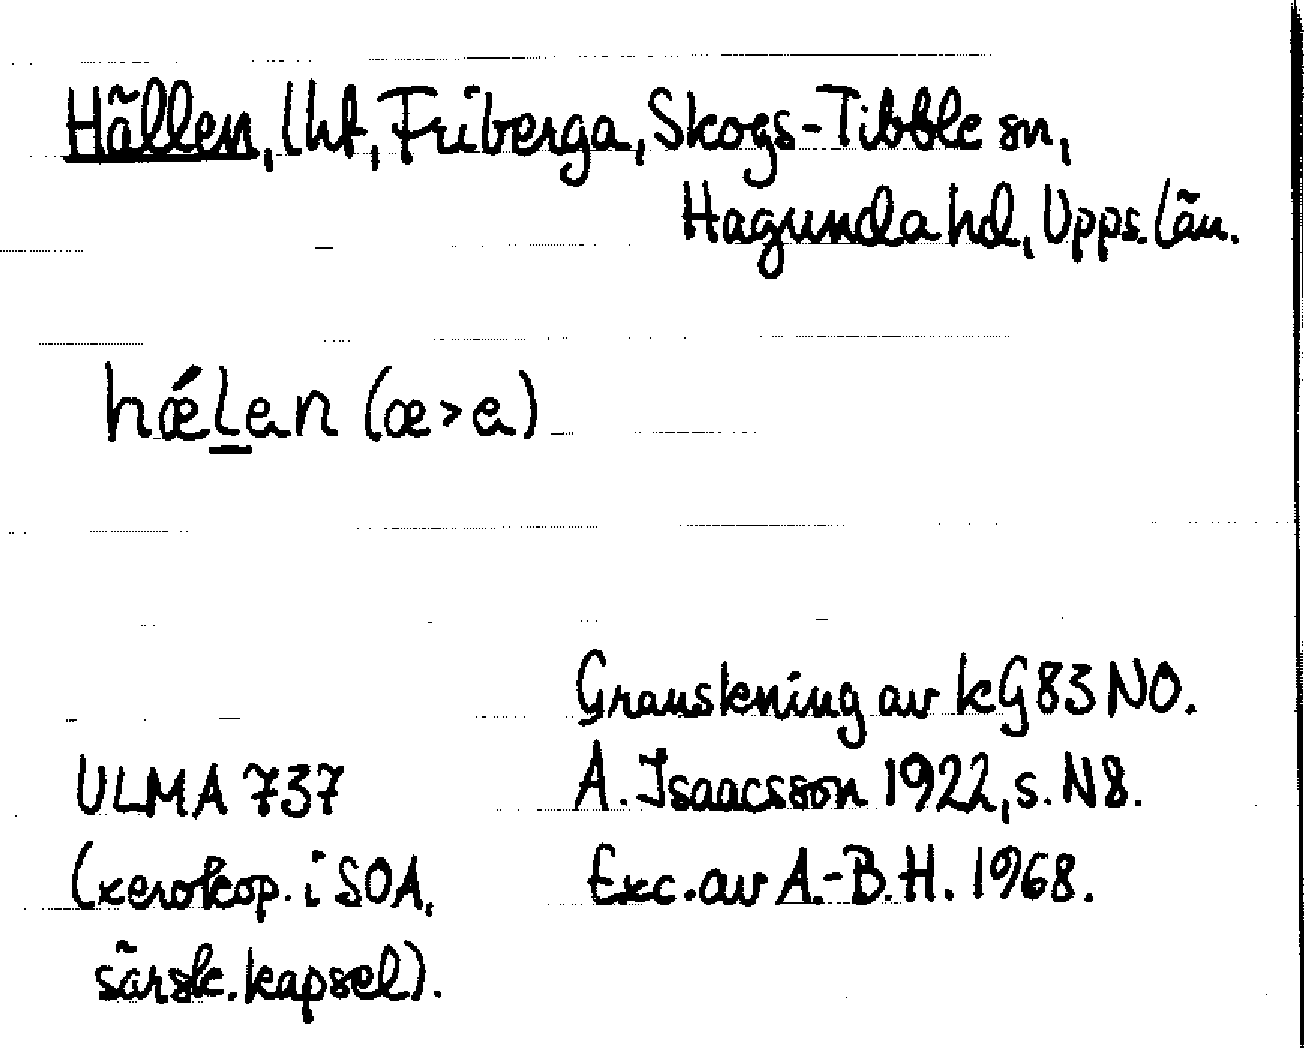 Hällen, lht, Friberga, Skogs-Tibble sn,
Hagunda hd, Upps. län.
hǽlan (æ>a)
Granskning av kG83 NO.
ULMA 737
A. Isaacsson 1922, s. N8.
(xerokop. i SOA,
Exc. av A.-B.H. 1968.
särsk. kapsel).